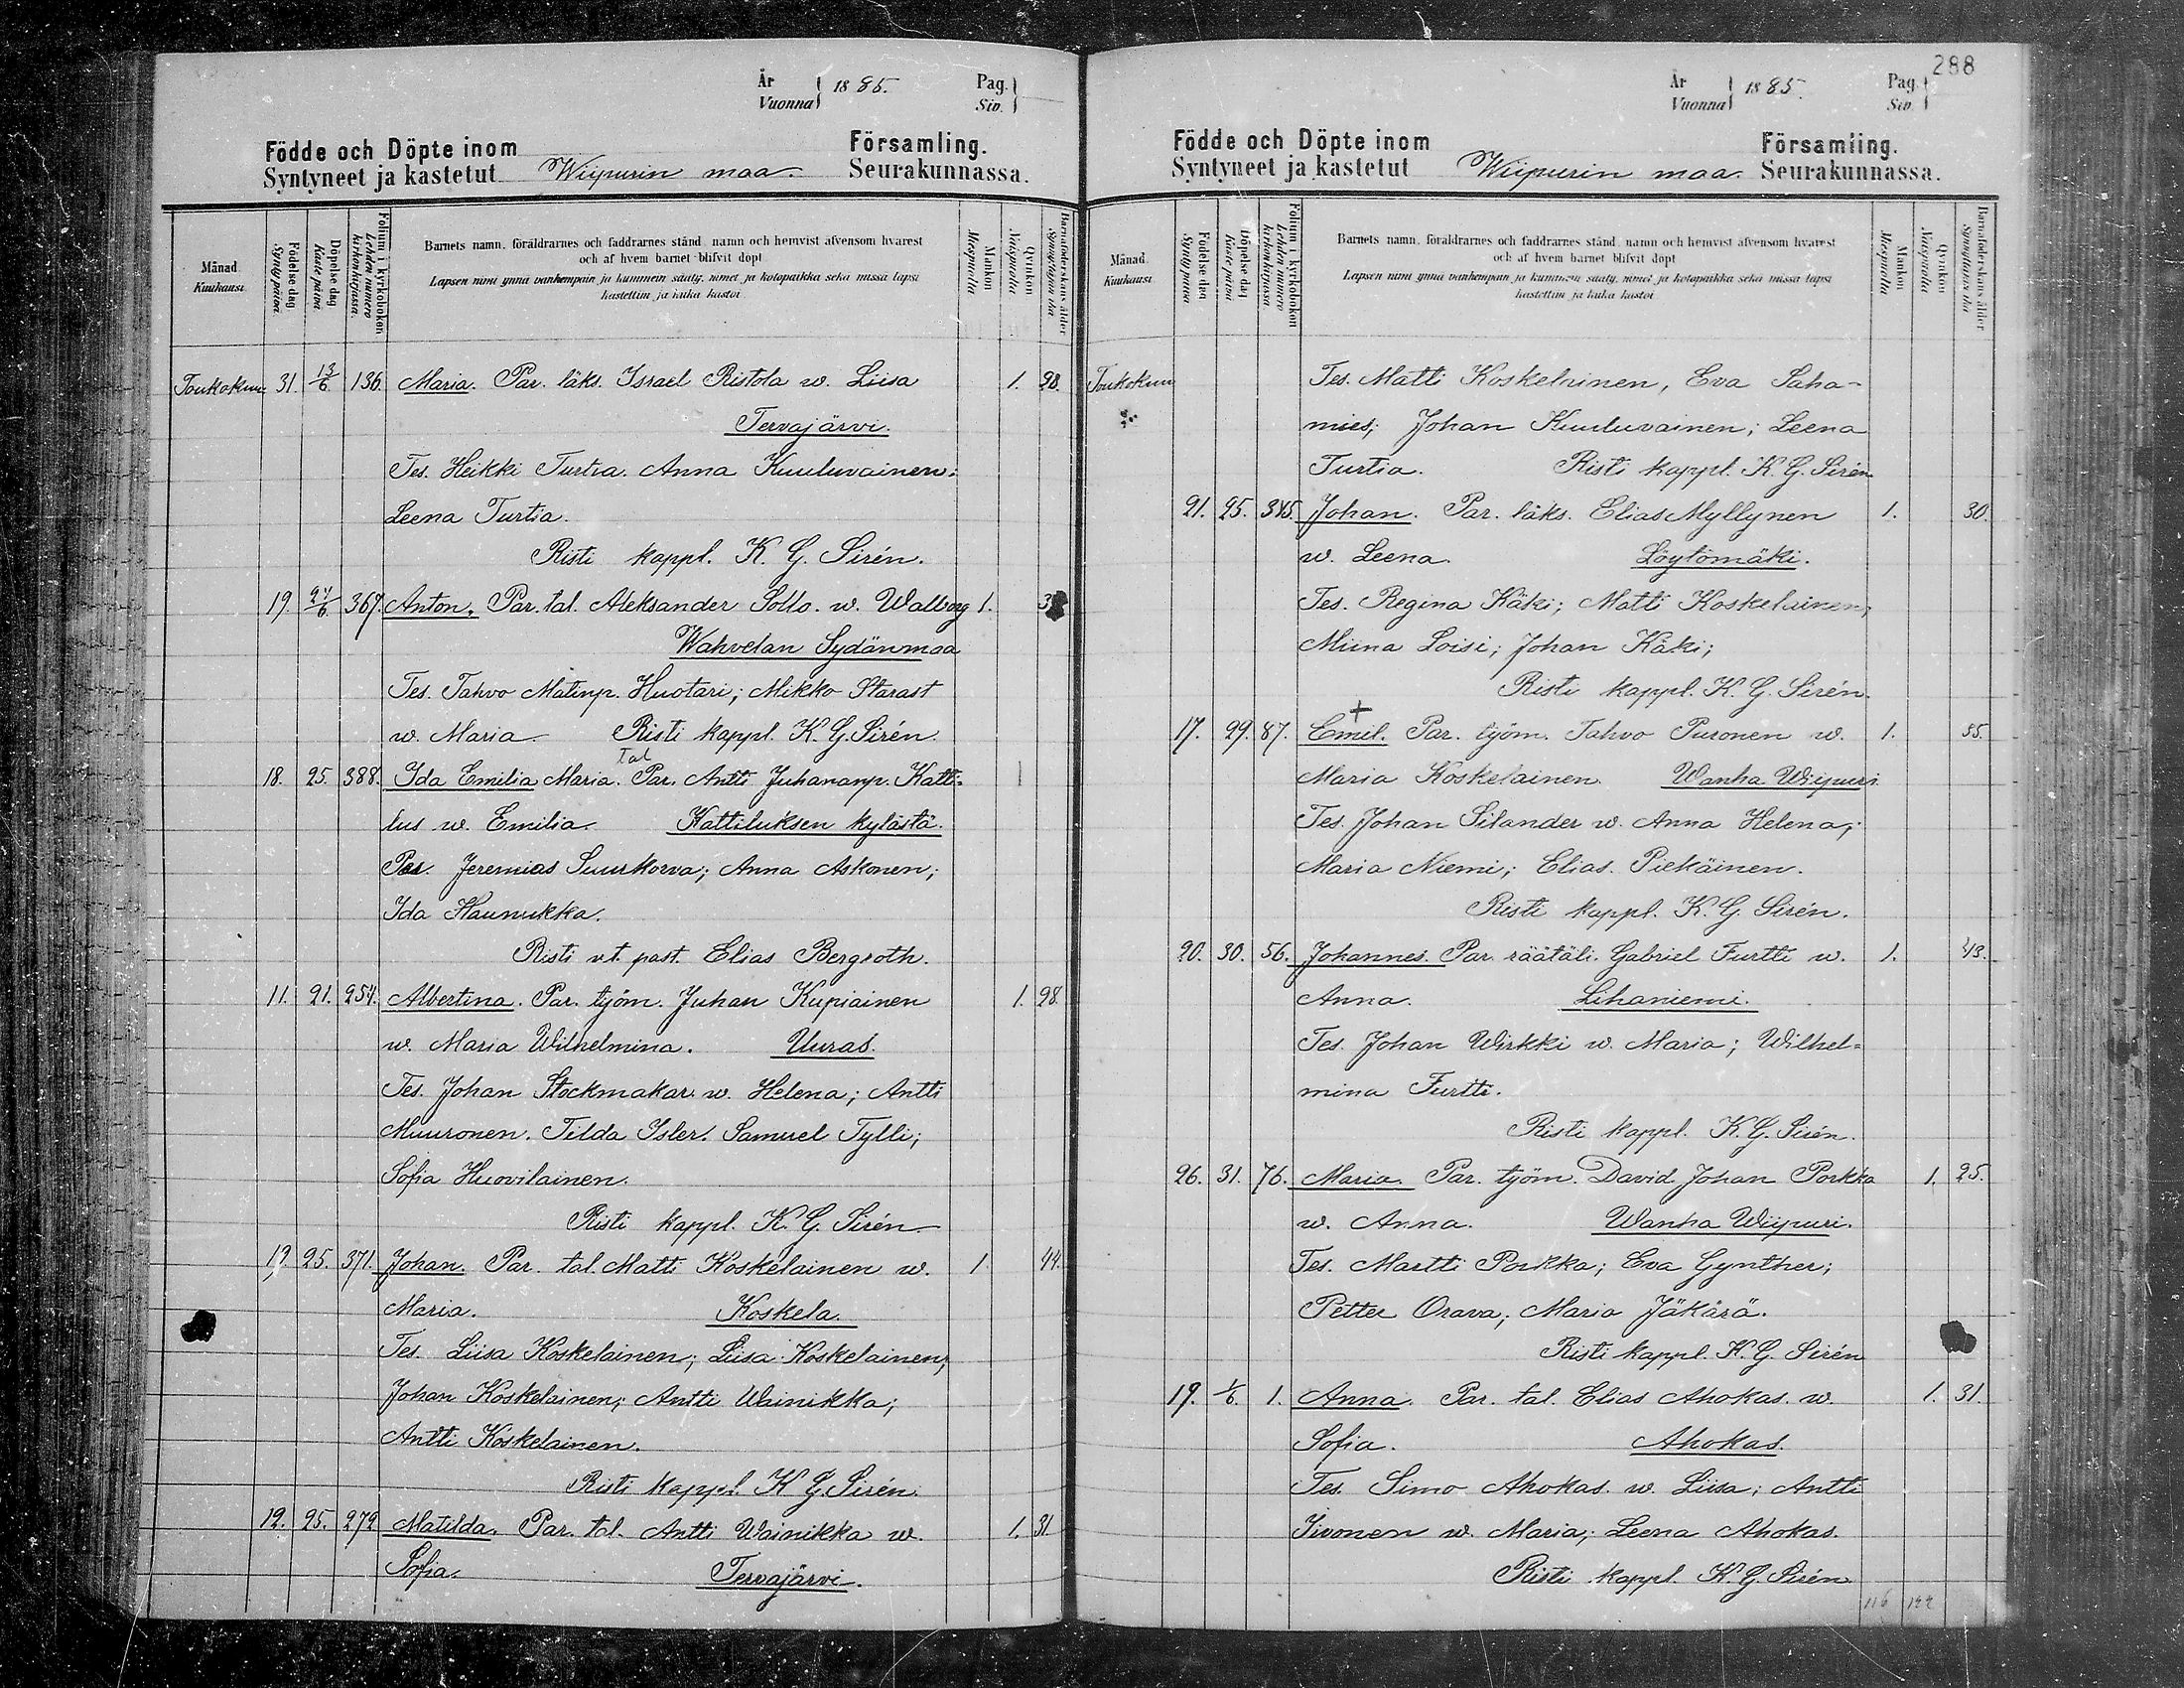 År
Vuonna 1885.
Pag.
Siv.
Födde och Döpte inom
Syntyneet ja kastetut Wiipurin maa.
Församling.
Seurakunnassa.
Månad
Kuukausi
Födelse dag
Syntypäivä
Döpelse dag
Kaste päivä
Folium i kyrkoboken
Lehden numero kirkonkirjassa.
Barnets namn, föräldrarnes och faddrarnes stånd, namn och hemvist äfvensom hvarest
och af hvem barnet blifvit döpt
Lapsen nimi ynnä vanhempain ja kummein sääty, nimet ja kotopaikka sekä missä lapsi
kastettiin ja kuka kastoi
Mankön
Miespuolta
Qvinkön
Naispuolta
Barnaföderskans ålder
Synnyttäjän ikä
Toukokuu 31. 13/6 136. Maria. Par. läks. Israel Ristola w. Liisa 1. 28.
Tervajärvi.
Tes. Heikki Turtia. Anna Kuuluvainen;
Leena Turtia.
Risti kappl. K. G. Sirén.
19. 27/6 367. Anton. Par. tal. Aleksander Sollo. w. Walborg 1.
Wahvelan Sydänmaa
Tes. Tahvo Matinp. Huotari; Mikko Starast
w. Maria. Risti kappl. K. G. Sirén.
tal
18. 25. 388. Ida Emilia Maria. Par. Antti Juhananp. Katti- 1
lus w. Emilia. Kattiluksen kylästä.
Jeremias Suurkorva; Anna Askonen;
Ida Haunukka.
Risti v.t. past. Elias Bergroth.
11. 21. 254. Albertina. Par. työm. Juhan Kupiainen 1. 28.
w. Maria Wilhelmina. Uuras.
Tes. Johan Stockmakar w. Helena; Antti
Muuronen. Tilda Isler. Samuel Tylli;
Sofia Huovilainen.
Risti kappl. K. G. Sirén.
25. 371. Johan. Par. tal. Matti Koskelainen w. 1 44.
Maria. Koskela.
Tes. Liisa Koskelainen; Liisa Koskelainen;
Johan Koskelainen; Antti Wainikka;
Antti Koskelainen.
Risti kappl. K G. Sirén.
12. 25. 272 Matilda. Par. tal. Antti Wainikka w. 1. 31.
Sofia. Tervajärvi.
288
År
Vuonna 1885.
Pag.
Siv.
Födde och Döpte inom
Syntyneet ja kastetut Wiipurin maa.
Församling.
Seurakunnassa.
Månad
Kuukausi
Födelse dag
Syntypäivä
Döpelse dag
Kaste päivä
Folium i kyrkoboken
Lehden numero kirkonkirjassa
Barnets namn, föräldrarnes och faddrarnes stånd, namn och hemvist äfvensom hvarest
och af hvem barnet blifvit döpt
Lapsen nimi ynnä vanhempain ja kummein sääty, nimet ja kotopaikka sekä missä lapsi
kastettiin ja kuka kastoi
Mankön
Miespuolta
Qvinkön
Naispuolta
Barnaföderskans ålder
Synnyttäjän ikä
Toukokuu Tes. Matti Koskelainen, Eva Saha-
mies; Johan Kuuluvainen; Leena
Turtia. Risti kappl. K. G. Sirén
21. 25. 345. Johan. Par. läks. Elias Myllynen 1. 30.
w. Leena. Löytömäki.
Tes. Regina Käki; Matti Koskelainen;
Miina Loisi; Johan Käki;
Risti kappl. K. G. Sirén.
17. 29. 87. Emil. Par. työm. Tahvo Puronen w. 1. 35.
Maria Koskelainen. Wanha Wiipuri.
Tes. Johan Silander w. Anna Helena;
Maria Niemi; Elias. Piekäinen.
Risti kappl. K. G. Sirén.
20. 30. 56. Johannes. Par. räätäli. Gabriel Furtti w. 1. 43.
Anna. Lihaniemi.
Tes. Johan Wirkki w. Maria; Wilhel-
mina Furtti.
Risti kappl. K. G. Sirén.
26. 31. 76. Maria. Par. työm. David Johan Porkka 1. 25.
w. Anna. Wanha Wiipuri.
Tes. Martti Porkka; Eva Gynther;
Petter Orava; Maria Jäkärä.
Risti kappl. K. G. Sirén
19. 1/6. 1. Anna. Par. tal. Elias Ahokas. w. 1. 31.
Sofia. Ahokas.
Tes. Simo Ahokas. w. Liisa; Antti
Iivonen w. Maria; Leena Ahokas.
Risti kappl. K. G. Sirén.
116 122